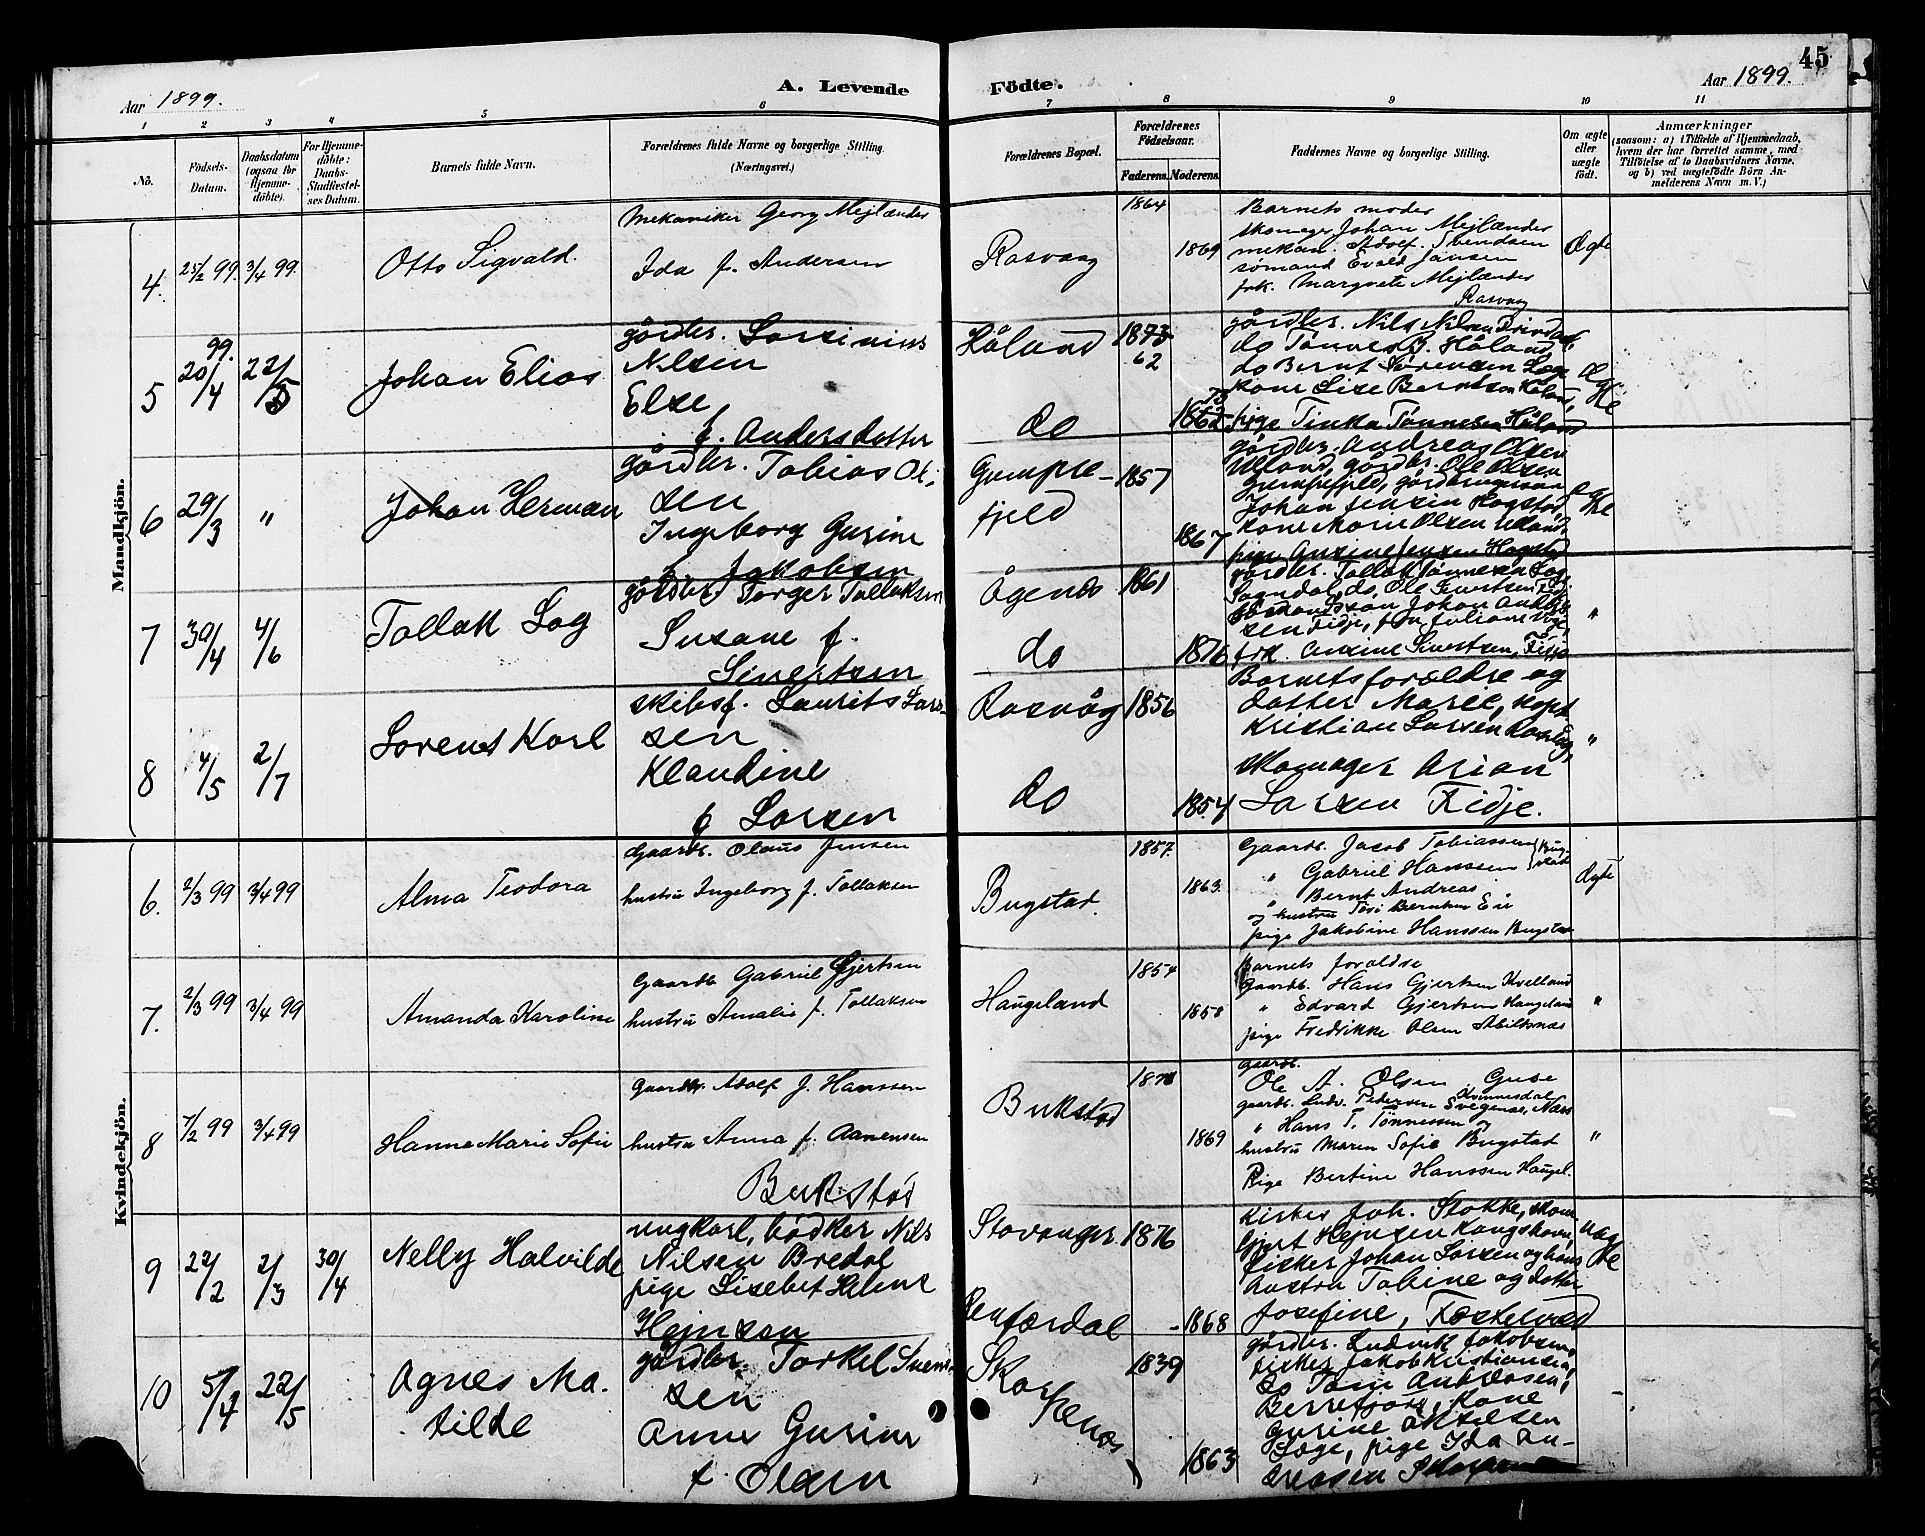 45
Aar 1899.
A. Levende
Födte.
Aar 1899.
1 2 3 4 5 6 7 8 9 10 11
No.
Födsels-
Datum.
Daabsdatum
(ogsaa for
Hjemme-
döbte).
For Hjemme-
döbte:
Daabs-
Stadfæstel-
ses Datum.
Barnets fulde Navn.
Forældrenes fulde Navne og borgerlige Stilling
(Næringsvei.)
Forældrenes Bopæl.
Forældrenes
Födselsaar.
Faderens.
Moderens.
Faddernes Navne og borgerlige Stilling.
Om ægte
eller
uægte
födt.
Anmærkninger
(saasom: a) i Tilfælde af Hjemmedaab,
hvem der har forrettet samme, med
Tilföielse af to Daabsvidners Navne.
og b) ved uægtefödte Börn An-
melderens Navn m. V.)
Mandkjön.
4.
25/2 99.
3/4 99.
Otto Sigvald.
Mekaniker Georg Mejlænder
Ida f. Andersen
Rasvaag
1864
1869
Barnets moder
skomager Johan Mejlænder
mekan. Adolf Svendsen
sömand Evald Jansen
frk. Margrete Mejlænder
Rasvaag
Ægte
5
99.
20/4
22/5
Johan Elias
gårdbr.
Nilsen
Else,
f. Andersdatter
Håland
do
1873
62
73
1862
gårdbr. Nils Nilsen
do Tönnes B. Håland,
do Bernt Sörensen Log
kone Lise Berntsen Håland,
pige Tinka Tönnesen Håland
Ægte
6
29/3
"
Johan Herman
gårdbr. Tobias Ol-
sen
Ingeborg Gurine
f. Jakobsen
Gumpe-
fjeld
1857
1867
gårdbr. Andreas Olsen
Uland, gårdbr. Ole Olsen
Gumpefjeld,
Johan Jensen Hogstad,
kone Maren Olsen Uland
pige Ansine Jensen Hogstad
Ægte
7
30/4
4/6
Tollak Log
gårdbr. Torger Tollaksen
Susane f.
Sivertsen
Ågenes
do
1861
1876
gårdbr. Tollak Tönnesen Log
Sogndal, do. Ole Sivertsen
Johan Andrea-
sen Fidje,
frk. Ansine Sivertsen, Fidje
"
8
4/5
2/7
Lorents Karl
skibsf. Laurits Lar-
sen
Klaudine
f Larsen
Rasvåg
do
1856
1854
Barnets forældre og
datter Marie, kapt.
Kristian Larsen Rasvåg,
skomager Arian
Larsen Fidje.
"
Kvindekjön.
6.
2/3 99
3/4 99
Alma Teodora
Gaardb. Olaus Jensen
hustru Ingeborg f. Tollaksen
Bugstad.
1857.
1863.
Gaardb. Jacob Tobiassen
" Gabriel Hanssen
" Bernt Andreas
og hustru Tori Berntsen Eie
pige Jakobine Hanssen Bugstad
Ægte
7.
2/3 99
3/4 99
Amanda Karoline
Gaardb Gabriel Gjertsen
hustru Amalie f. Tollaksen
Haugeland
1854
1858
Barnets forældre
Gaardb. Hans Gjertsen Kvelland
" Edvard Gjertsen Haugeland
pige Fredrikke Olsen Abildsnæs
"
8
7/2 99
3/4 99
Hanna Marie Sofie
Gaardb. Adolf J. Hanssen
hustru Anna f. Aanensen
Bukstad
Bukstad
1871
1869
gaardb.
Ole A. Olsen Guse
Kvinnesdal
gaardb. Ludv. Pedersen Svegenæs, Næss
" Hans T. Tönnessen og
hustru Maren Sofie Bugstad
Pige Bertine Hanssen Haugel.
"
9
22/2
2/3
30/4
Nelly Halvilde
ungkarl, bödker Nils
Nilsen Bredal
pige Lisebet Helene
Hejnsen
Stavanger
1876
- 1868
fisker Joh. Stokke,
Gjert Hejnsen Kongshavn,
fisker Johan Larsen og hans
hustru Tobine og datter
Josefine,
Uæg
te
10
5/4
22/5
Agnes Ma.
tilde
gårdbr. Torkel Sven-
sen
Anne Gurine
f. Olsen
1839
1863
gårdbr. Ludvik Jakobsen,
fisker Jakob Kristiansen,
do Tom Andreasen,
Berrefjord, kone
Gurine Akselsen
Løge, pige Ida An-
dreasen